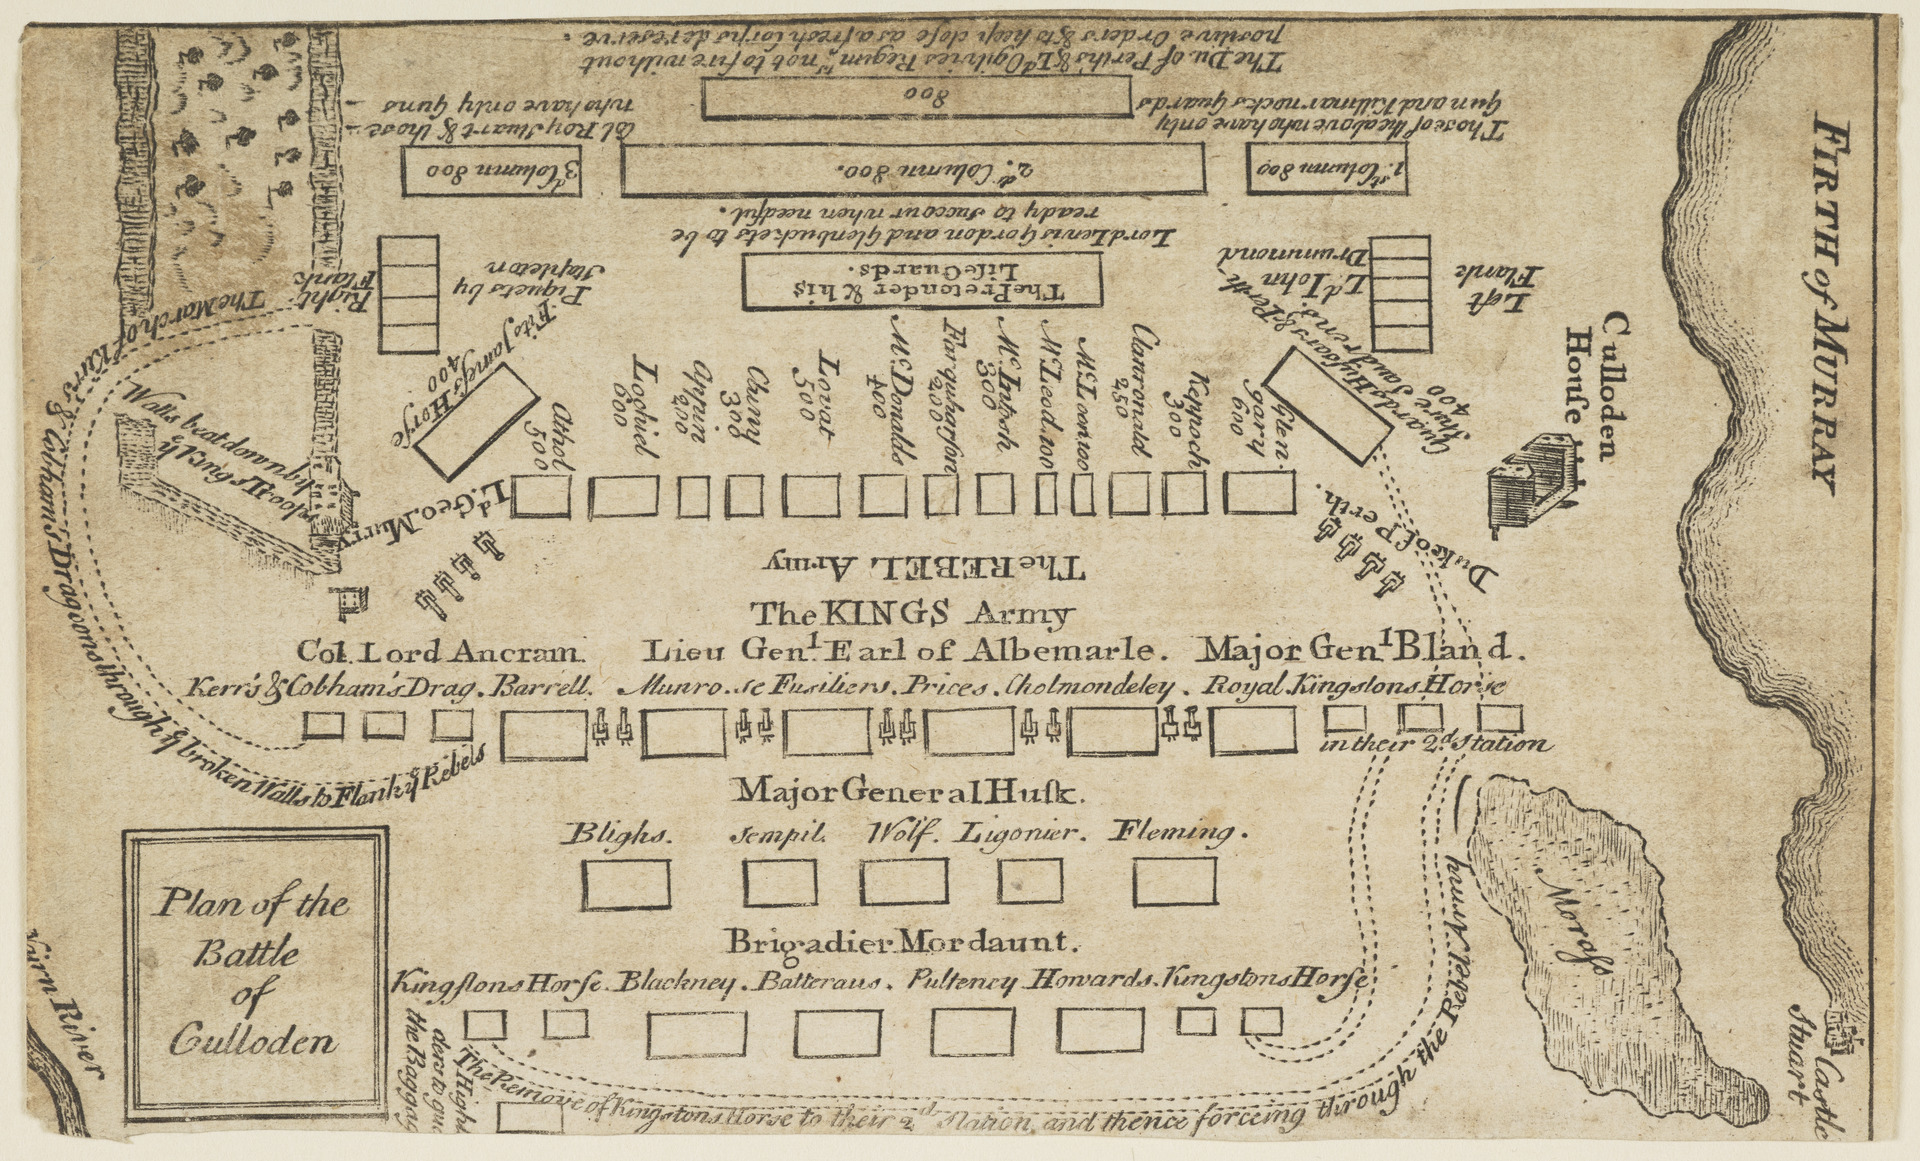 The Du. of Perth's & Ld. Ogilvies Regimts. not to fire without
positive Orders & to keep close as a fresh Corps de reserve.
800
Those of the above who have only
Gun and Killmarnocks Guards
Col Roy Stuart & those
who have only Guns
1st Column 800
2d Column 800.
3d Column 800
Lord Lewis Gordon and Glenbuckets to be
ready to succour when needful.
The Pretender & his
Life Guards.
Left
Flank
Ld. John
Drummond
Right
Flank
Piquets by
Stapleton
Fits James's Horse
400
Guards Hussars & Perth
Shire Squadrons
400
Athol
500
Lochiel
600
Appin
200
Cluny
300
Lovat
500
Mc.Donalds
400
Farquharson
200
Mc.Intosh
300
Mc.Leod 100
Mc.Leon 100
Clanronald
250
Keppoch
300
Glen
gary
600
Ld. Geo. Murry
Duke of Perth.
The REBEL Army
The KINGS Army
Col. Lord Ancram. Lieu Genl. Earl of Albemarle. Major Genl Bland.
Kerr's & Cobham's Drag. Barrell. Munro. Sc Fusiliers. Prices. Cholmondeley. Royal. Kingstons Horse
in their 2d Station
Major General Husk.
Blighs. Sempil. Wolf. Ligonier. Fleming.
Brigadier Mordaunt.
Kingstons Horse. Blackney. Batteraus. Pulteney Howards. Kingstons Horse
The Remove of Kingstons Horse to their 2d Station, and thence forceing through the Rebel Army
The March of Kerrs & Cobham's Dragoons through ye broken Walls to Flank ye Rebels
Walls beat down light
Plan of the
Battle
of
Culloden
Nairn River
the Baggag
Culloden
House
FIRTH of MURRAY
Morass
Castle
Stuart